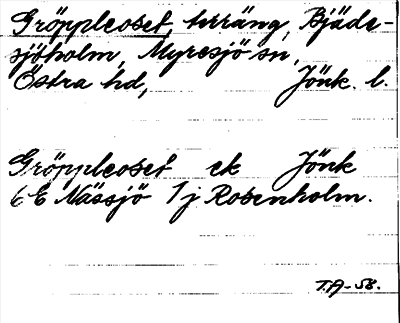 Gröppleoset, terräng, Bjäde-
sjöholm, Myresjö sn,
Östra hd, Jönk. l.
Gröppleoset ek Jönk
6E Nässjö 1j Rosenholm.
T.A-58.